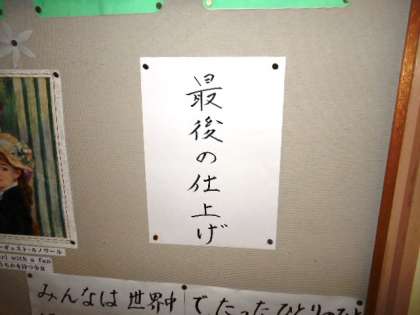 最後の仕上げ
ーギュスト・ルノワール
irl with a fan
みんなは世界中でたったひとりの